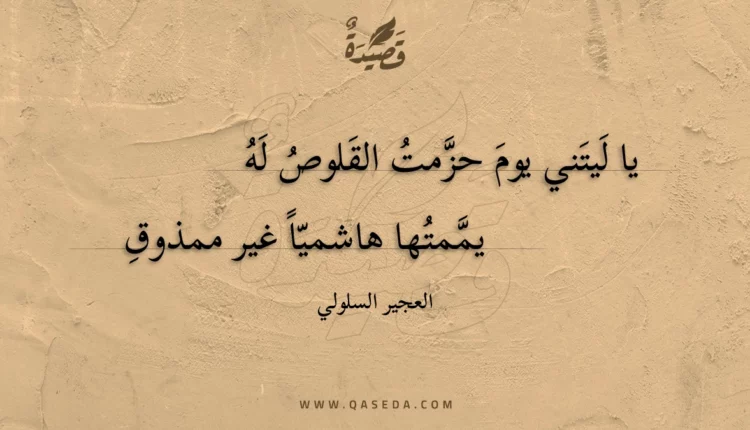 قَصِيدَةٌ
يا لَيتَني يومَ حزَّمتُ القَلوصُ لَهُ
يمَّمتُها هاشميّاً غير ممذوقِ
العجير السلولي
WWW.QASEDA.COM